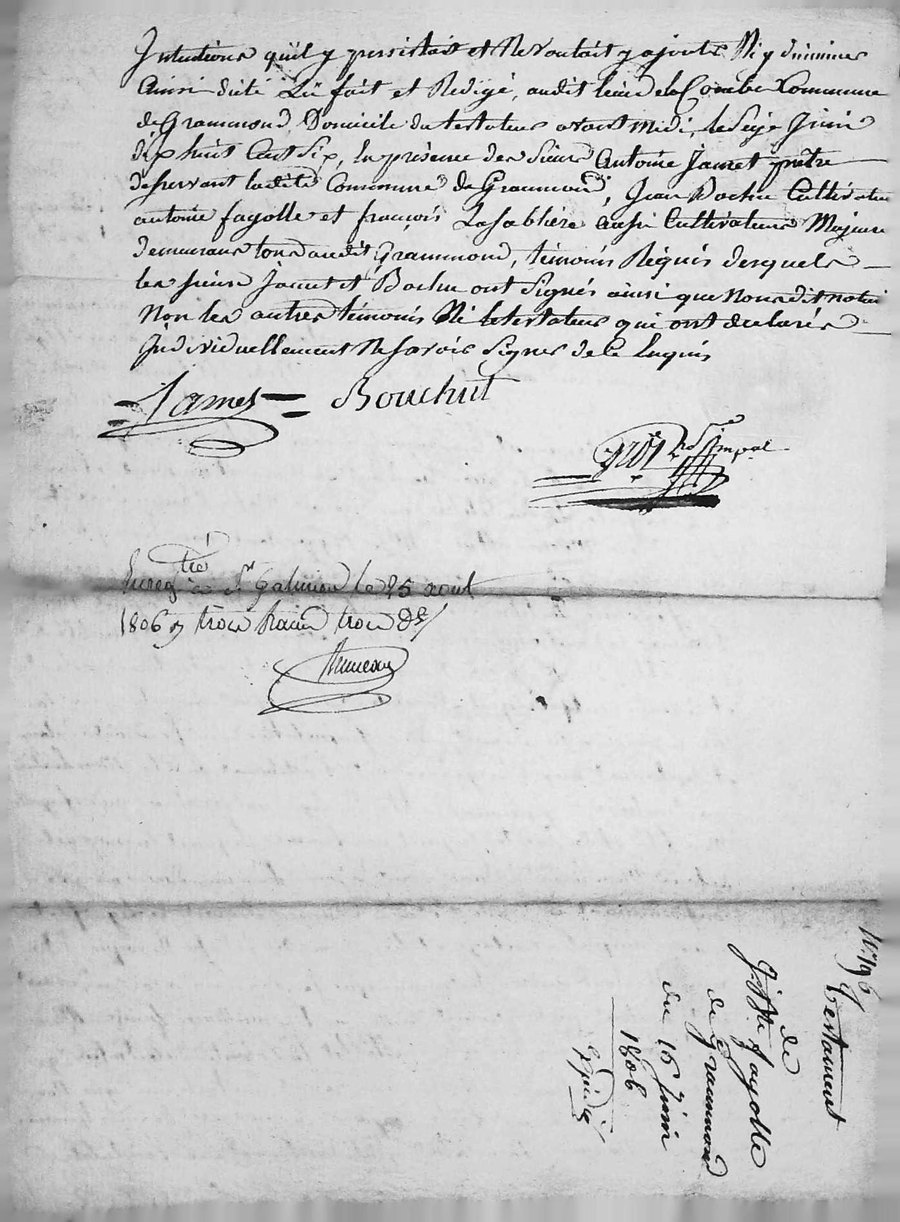 Intentions qu'il y persistait et Ne voulait y ajouter Ni y diminuer
Ainsi dicté Lû fait et Redigé, audit lieu de Combe Commune
de Grammond, Domicile du testateur avant midi, le Seize Juin
dix huit Cent Six, En présence des Sieurs Antoine Jamet prêtre
desservant ladite Commune de Grammond, Jean Bochu Cultivateur
antoine fayolle et françois Lasablière aussi Cultivateurs Majeurs
demeurans tous audit Grammond, témoins Réquis desquels
les sieurs Jamet et Bochu ont Signés ainsi que Nous dit notaire
Non les autres témoins Ni le testateur qui ont declarés
Individuellement Ne savoir Signer de ce Enquis
James Bouchut
Enregtré à St Galmier le 25 aout
1806 trois francs trois
No 196
testament
de
fayolle
de Grammond
du 16 Juin
1806